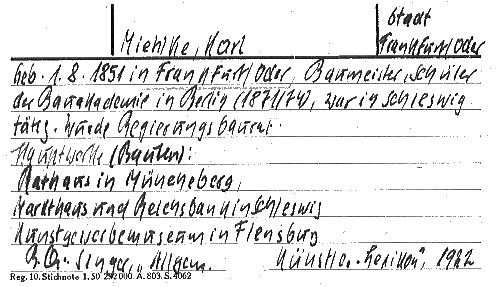 Stadt
Miehlke, Karl Frankfurt/Oder
Geb. 1. 8. 1851 in Frankfurt/Oder, Baumeister, Schüler
der Bauakademie in Berlin (1871/74), war in Schleswig
tätig. Wurde Regierungsbaurat.
Hauptwerke (Bauten):
Rathaus in Müncheberg,
Markthaus und Reichsbank in Schleswig
Kunstgewerbemuseum in Flensburg
Singer, Allgem. Künstler-Lexikon", 1922
Reg. 10. Stichnote 1. 50 292000 A. 803. S. 4062